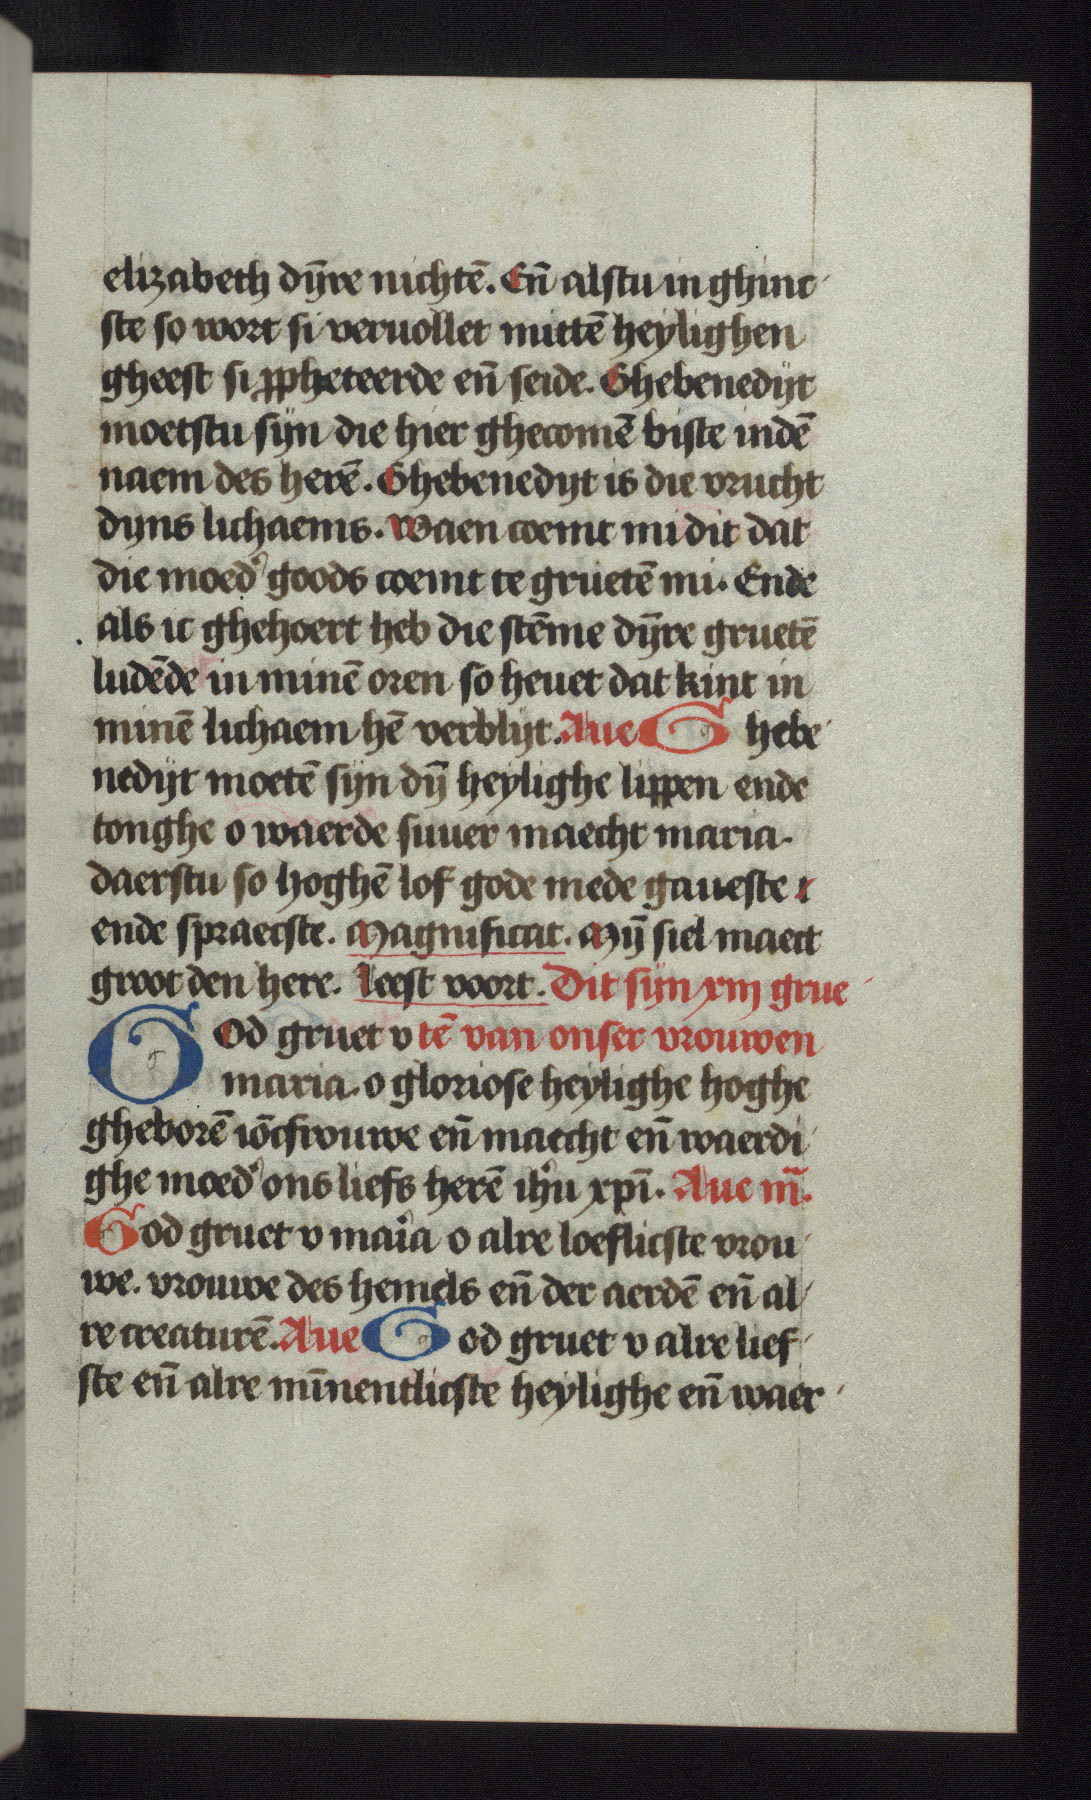 elizabeth dӱre nichtē. Eñ alstu in ghinc
ste so wort si veruollet mittē heylighen
gheest si ꝓpheteerde eñ seide. Ghebenedijt
moetstu sijn die hier ghecomē biste indē
naem des herē. Ghebenedijt is die vrucht
dijns lichaems. Waen coemt mi dit dat
die moed' goods coemt te gruetē mi. Ende
als ic ghehoert heb die stēme dӱre gruetē
ludēde in minē oren so heuet dat kint in
minē lichaem hē verblijt. Aue Ghebe
nedijt moetē sijn dӱ heylighe lippen ende
tonghe o waerde suuer maecht maria.
daerstu so hoghē lof gode mede gaueste
ende spraecste. Magnificat. Mӱ siel maect
groot den here. Leest voort. Dit sijn xiij grue
God gruet v tē van onser vrouwen
maria. o gloriose heylighe hoghe
gheborē iōcfrouwe eñ maecht eñ waerdi
ghe moed' ons liefs herē ihū xpī. Aue m̄.
God gruet v maīa o alre loeflicste vrou
we. vrouwe des hemels eñ der aerdē eñ al
re creaturē. Aue God gruet v alre lief
ste eñ alre mīnentlicste heylighe eñ waer